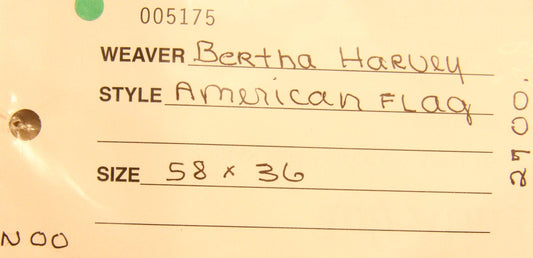 005175
WEAVER Bertha Harvey
STYLE American Flag
SIZE 58 x 36
2700.
N 00